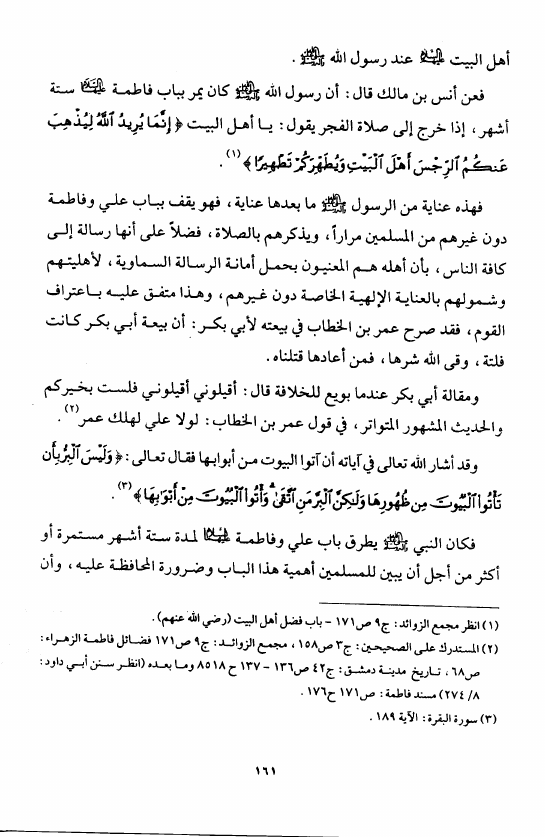 أهل البيت عليهم السلام عند رسول الله ﷺ .
فعن أنس بن مالك قال : أن رسول الله ﷺ كان يمر بباب فاطمة عليها السلام ستة
أشهر ، إذا خرج إلى صلاة الفجر يقول : يا أهل البيت ﴿ إِنَّمَا يُرِيدُ اللَّهُ لِيُذْهِبَ
عَنكُمُ الرِّجْسَ أَهْلَ الْبَيْتِ وَيُطَهِّرَكُمْ تَطْهِيرًا ﴾(١) .
فهذه عناية من الرسول ﷺ ما بعدها عناية ، فهو يقف بباب علي وفاطمة
دون غيرهم من المسلمين مراراً ، ويذكرهم بالصلاة ، فضلاً على أنها رسالة إلى
كافة الناس ، بأن أهله هم المعنيون بحمل أمانة الرسالة السماوية ، لأهليتهم
وشمولهم بالعناية الإلهية الخاصة دون غيرهم ، وهذا متفق عليه باعتراف
القوم ، فقد صرح عمر بن الخطاب في بيعته لأبي بكر : أن بيعة أبي بكر كانت
فلتة ، وقى الله شرها ، فمن أعادها قتلناه .
ومقالة أبي بكر عندما بويع للخلافة قال : أقيلوني أقيلوني فلست بخيركم
والحديث المشهور المتواتر ، في قول عمر بن الخطاب : لولا علي لهلك عمر(٢) .
وقد أشار الله تعالى في آياته أن آتوا البيوت من أبوابها فقال تعالى : ﴿ وَلَيْسَ الْبِرُّ بِأَن
تَأْتُوا الْبُيُوتَ مِن ظُهُورِهَا وَلَكِنَّ الْبِرَّ مَنِ اتَّقَىٰ وَأْتُوا الْبُيُوتَ مِنْ أَبْوَابِهَا ﴾(٣) .
فكان النبي ﷺ يطرق باب علي وفاطمة عليهما السلام لمدة ستة أشهر مستمرة أو
أكثر من أجل أن يبين للمسلمين أهمية هذا الباب وضرورة المحافظة عليه ، وأن
(١) انظر مجمع الزوائد : ج٩ ص١٧١ - باب فضل أهل البيت (رضي الله عنهم) .
(٢) المستدرك على الصحيحين : ج٣ ص١٥٨ ، مجمع الزوائد : ج٩ ص١٧١ فضائل فاطمة الزهراء :
ص٦٨ ، تاريخ مدينة دمشق : ج٤٢ ص١٣٦ - ١٣٧ ح٨٥١٨ وما بعده (انظر سنن أبي داود :
٨/ ٢٧٤) مسند فاطمة : ص١٧١ ح١٧٦ .
(٣) سورة البقرة : الآية ١٨٩ .
١٦١